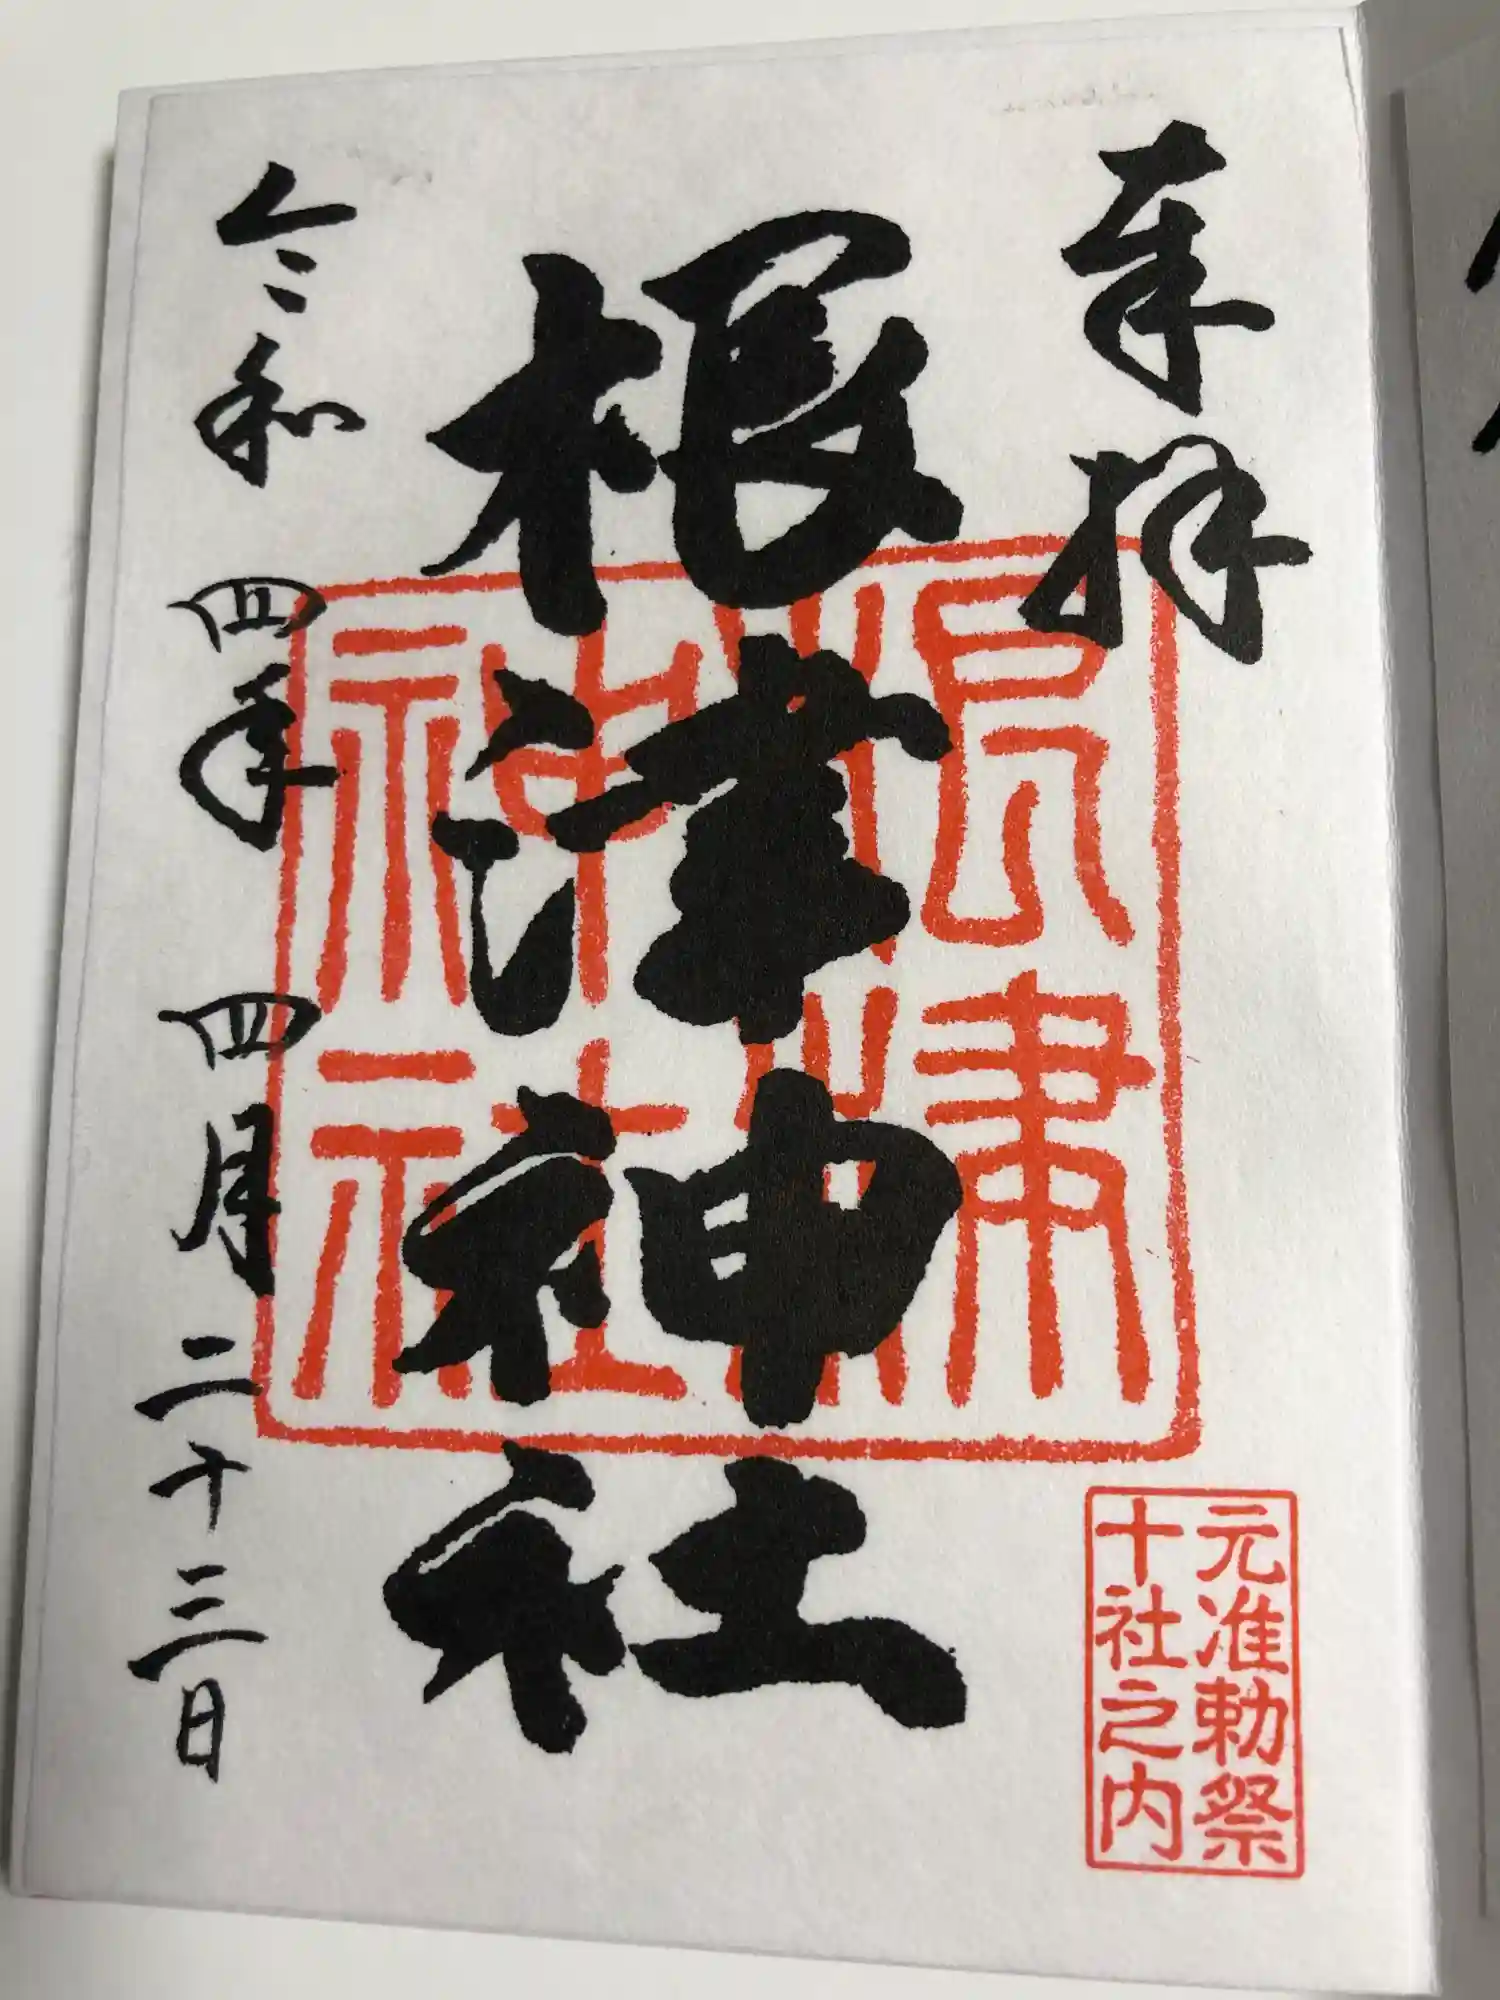 奉拝
根津神社
根津
神社
元准勅祭
十社之内
令和四年四月二十三日